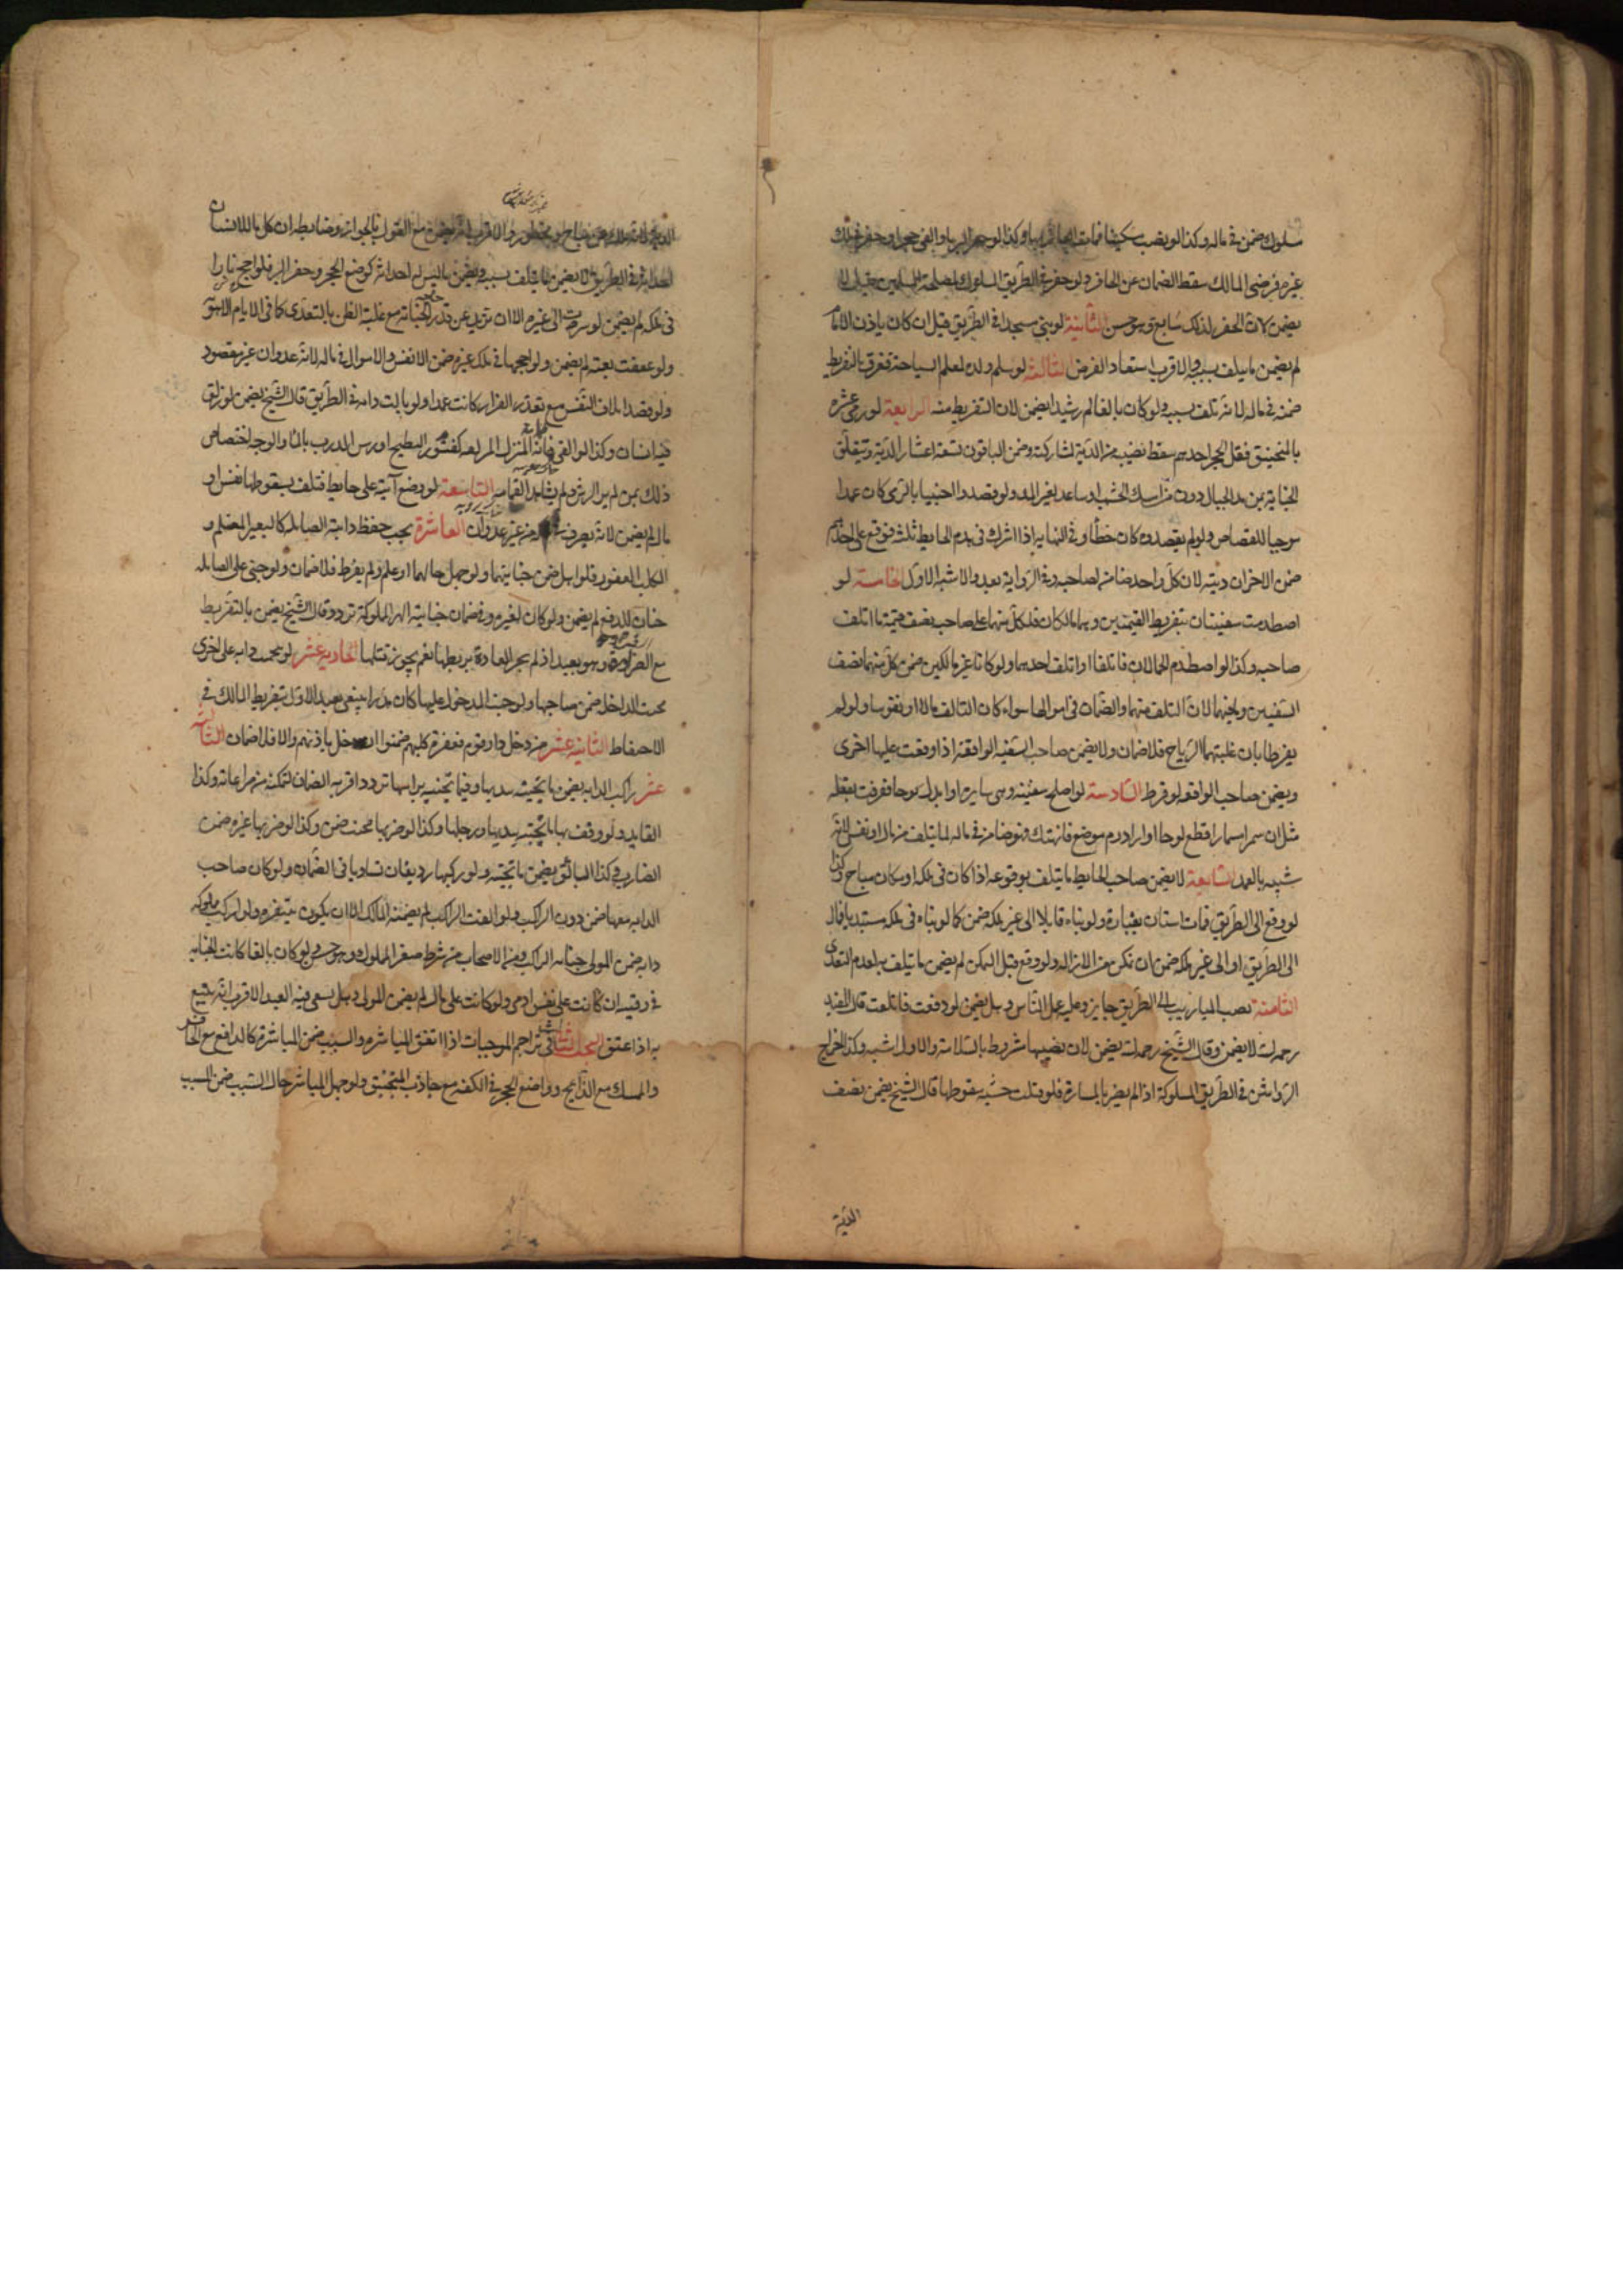 مسلوك ضمن في ماله وكذا لو نصب سكينا فمات العاثر بها وكذا لو حفر البير او القى حجرا ولو حفر في ملك
غيره فرضي المالك سقط الضمان عن الحافر ولو حفر في الطريق المسلوك لمصلحة المسلمين قيل لا
يضمن لان الحفر لذلك سايغ وهو حسن الثانية لو بنى مسجدا في الطريق قيل ان كان باذن الامام
لم يضمن ما يتلف بسببه والاقرب استبعاد الفرض الثالثة لو سلم ولده لمعلم السباحة فغرق بالتفريط
ضمنه في ماله لانه تلف بسببه ولو كان بالغا لم رشيدا يضمن لان التفريط منه الرابعة لو رمى عشرة
بالمنجنيق فقتل الحجر احدهم سقط نصيبه من الدية لمشاركته وضمن الباقون تسعة اعشار الدية وتتعلق
الجناية بمن مد الحبال دون من امسك الخشب او ساعد بغير المد ولو قصدوا اجنبيا بالرمي كان عمدا
موجبا للقصاص ولو لم يقصدوه كان خطأ وفي النهاية اذا اشترك في هدم الحايط ثلثة فوقع على احدهم
ضمن الاخران ديته لان كل واحد ضامن لصاحبه وفي الرواية بعد والاشبه الاول الخامسة لو
اصطدمت سفينتان بتفريط القيمين وهما مالكان فلكل منهما على صاحبه نصف قيمة ما اتلف
صاحبه وكذا لو اصطدم الحمالان فاتلفا او اتلف احدهما ولو كانا غير مالكين ضمن كل منهما نصف
السفينتين وما فيهما لان التلف منهما والضمان في اموالهما سواء كان التالف مالا او نفوسا ولو لم
يفرطا بان غلبتهما الرياح فلا ضمان ولا يضمن صاحب السفينة الواقفة اذا وقعت عليها اخرى
ويضمن صاحب الواقعة لو فرط السادسة لو اصلح سفينة وهي سايرة او ابدل لوحا فغرقت بفعله
مثل ان سمر مسمارا فقلع لوحا او اراد رم موضع فانهتك فهو ضامن في ماله لما يتلف من مال او نفس لانه
شبيه بالعمد السابعة لا يضمن صاحب الحايط ما يتلف بوقوعه اذا كان في ملكه او مكان مباح وكذا
لو وقع الى الطريق فمات انسان بغباره ولو بناه مايلا الى غير ملكه ضمن كما لو بناه في ملكه مستبدا فمال
الى الطريق او الى غير ملكه ضمن ان تمكن من الازالة ولو وقع قبل التمكن لم يضمن ما يتلف به لعدم التعدي
الثامنة نصب الميازيب الى الطريق جايز وعليه عمل الناس وهل يضمن لو وقعت فاتلفت قال المفيد
رحمه الله لا يضمن وقال الشيخ رحمه الله يضمن لان نصبها مشروط بالسلامة والاول اشبه وكذا اخراج
الرواشن في الطريق المسلوكة اذا لم يضر بالمارة فلو قتلت خشبة بسقوطها قال الشيخ يضمن نصف
الدية
الدية لانه هلك عن مباح ومحظور والاقرب انه لا يضمن مع القول بالجواز وضابطه ان كل ما للانسان
احداثه في الطريق لا يضمن ما يتلف بسببه ويضمن بما ليس له احداثه كوضع الحجر وحفر البير فلو اجج نارا
في ملكه لم يضمن لو سرت الى غيره الا ان تزيد عن قدر الحاجة مع غلبة الظن بالتعدي كما في الايام الاهوية
ولو عصفت بغتة لم يضمن ولو اججها في ملك غيره ضمن الانفس والاموال في ماله لانه عدوان غير مقصود
ولو قصد اتلاف النفس مع تعذر الفرار كانت عمدا ولو بالت دابته في الطريق قال الشيخ يضمن لو زلق
فيه انسان وكذا لو القى قمامة المنزل المزلقة كقشور البطيخ او رش الدرب بالماء والوجه اختصاص
ذلك بمن لم ير الرش ولم يشاهد القمامة التاسعة لو وضع آنية على حايط فتلف بسقوطها نفس او
مال لم يضمن لانه تصرف في ملكه من غير عدوان العاشرة يجب حفظ دابته الصايلة كالبعير المغتلم و
الكلب العقور فلو اهمل ضمن جنايتهما ولو جهل حالهما او علم ولم يفرط فلا ضمان ولو جنى على الصايلة
جان للدفع لم يضمن ولو كان لغيره وفي ضمان جناية الهرة المملوكة تردد وقال الشيخ يضمن بالتفريط
مع الضراوة وهو بعيد اذ لم يجر العادة بربطها نعم يجوز قتلها الحادية عشر لو هجمت دابة على اخرى
فجنت الداخلة ضمن صاحبها ولو جنت المدخول عليها كان هدرا وينبغي تقييد الاول بتفريط المالك في
الاحتفاظ الثانية عشر من دخل دار قوم فعقره كلبهم ضمنوا ان دخل باذنهم والا فلا ضمان الثالثة
عشر راكب الدابة يضمن ما تجنيه بيديها وفيما تجنيه براسها تردد اقربه الضمان لتمكنه من مراعاته وكذا
القايد ولو وقف بها ما تجنيه بيديها ورجلها وكذا لو ضربها فجنت ضمن وكذا لو ضربها غيره ضمن
الضارب وكذا السائق يضمن ما تجنيه ولو ركبها رديفان تساويا في الضمان ولو كان صاحب
الدابة معها ضمن دون الراكب ولو القت الراكب لم يضمنه المالك الا ان يكون بتنفيره ولو اركب مملوكه
دابة ضمن المولى جناية الراكب ومن الاصحاب من شرط صغر المملوك وهو حسن ولو كان بالغا كانت الجناية
في رقبته ان كانت على نفس ادمي ولو كانت على مال لم يضمن المولى وهل يسعى فيه العبد الاقرب انه يتبع
به اذا عتق البحث الثالث في تزاحم الموجبات اذا اتفق المباشرة والسبب ضمن المباشرة كالدافع مع الحافر
والممسك مع الذابح وواضع الحجر في الكفة مع جاذب المنجنيق ولو جهل المباشر حال السبب ضمن المسبب